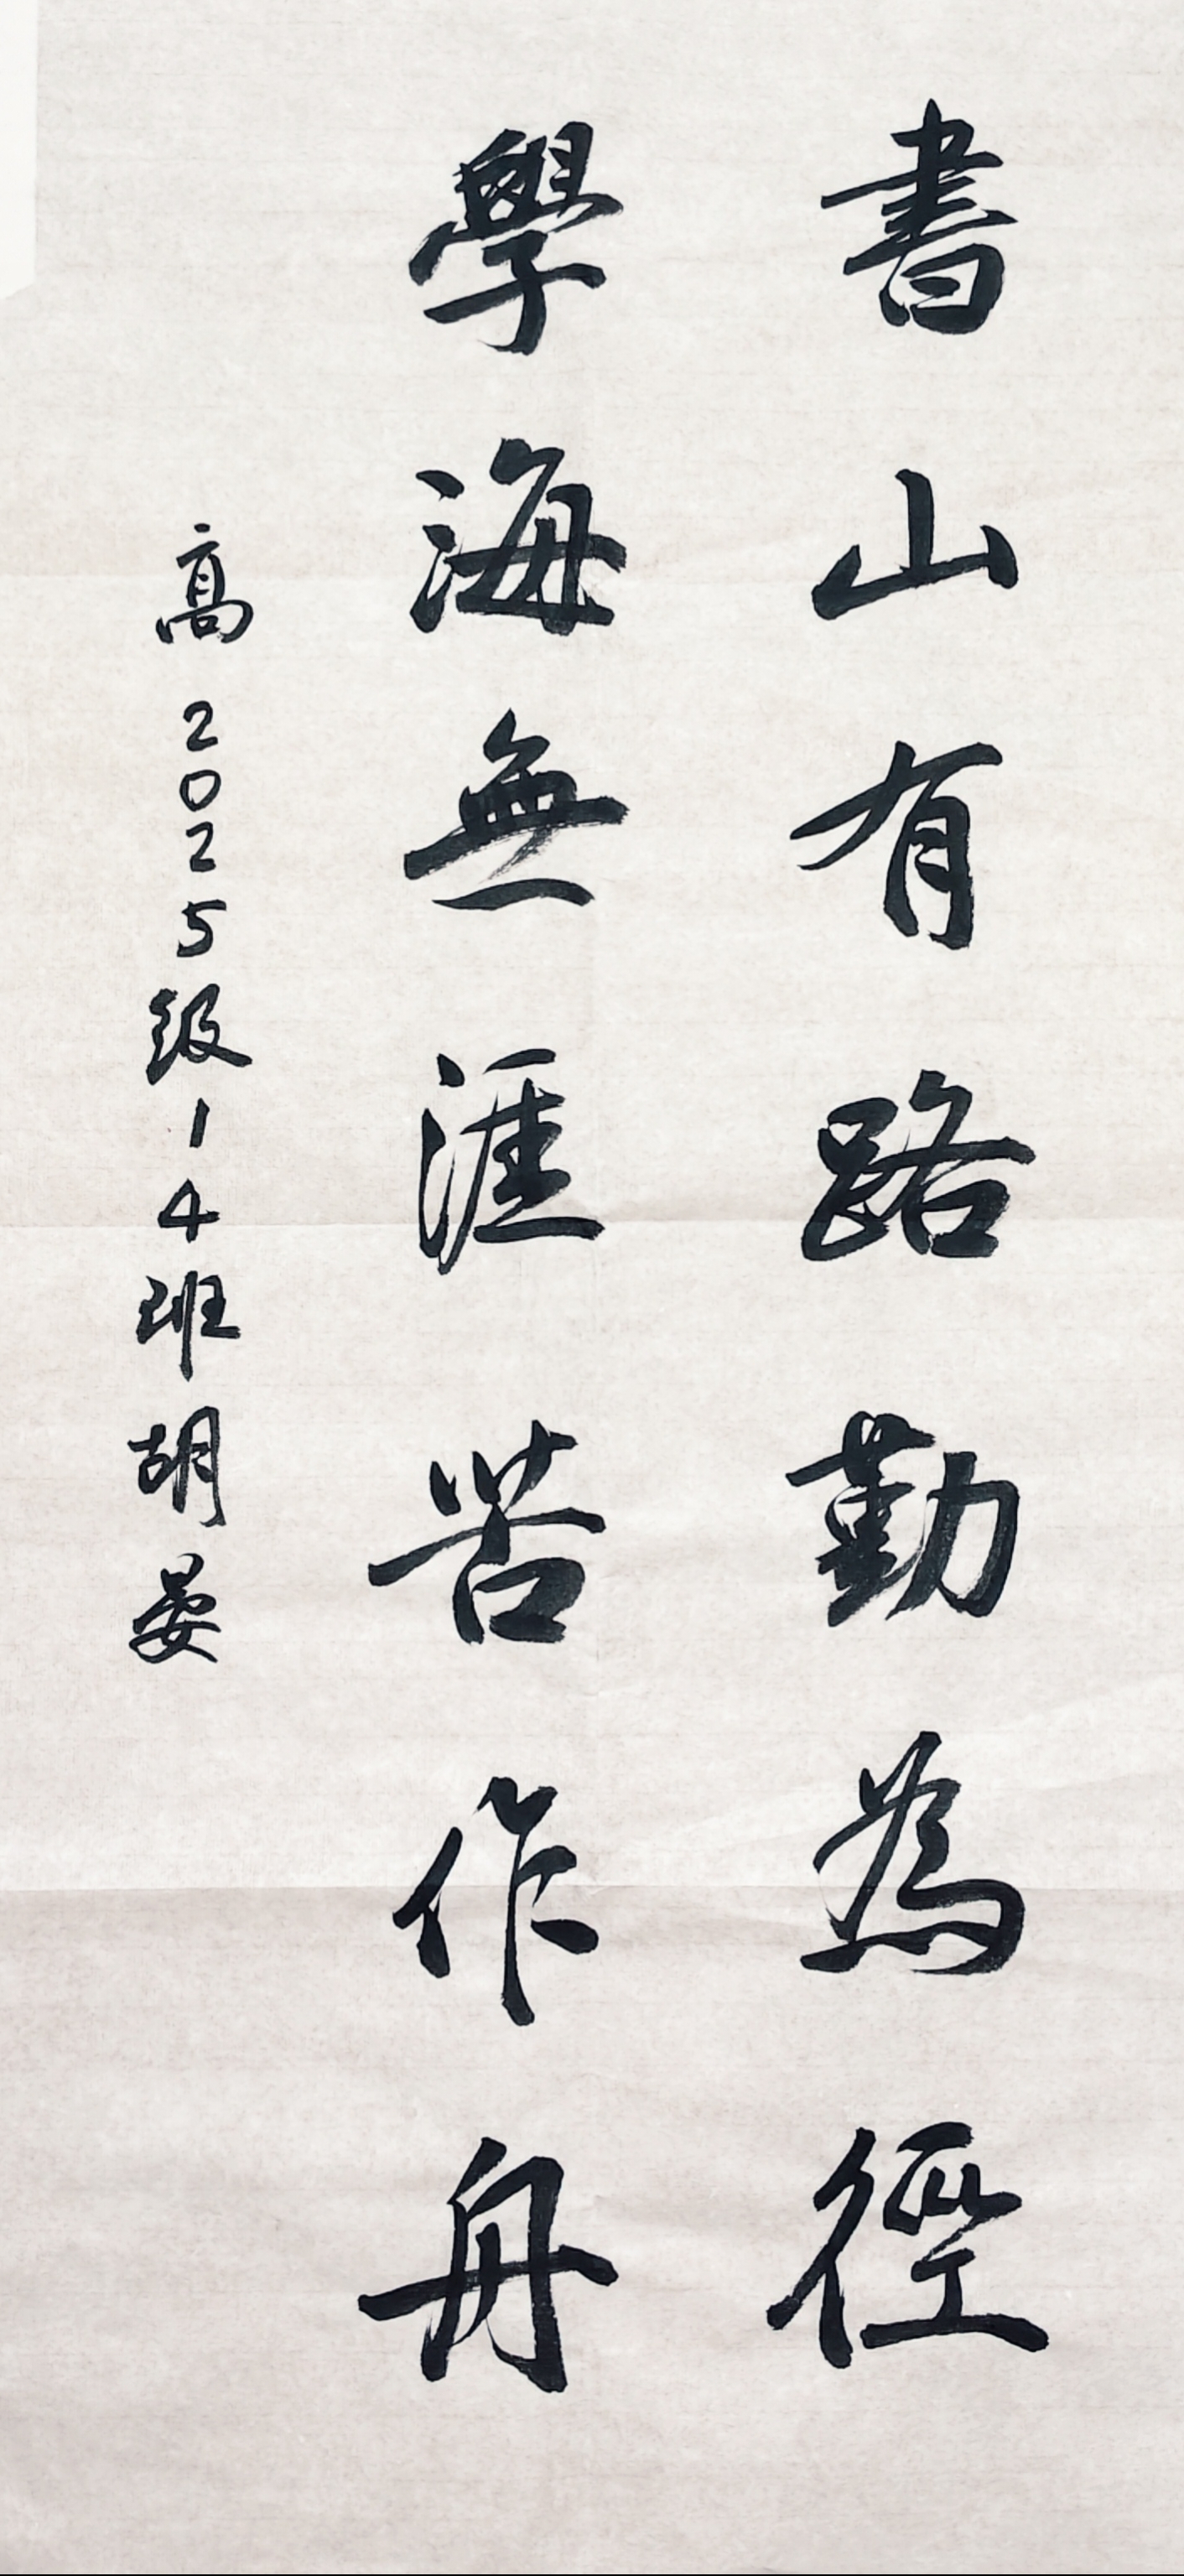 書山有路勤為徑
學海無涯苦作舟
高2025级14班胡晏